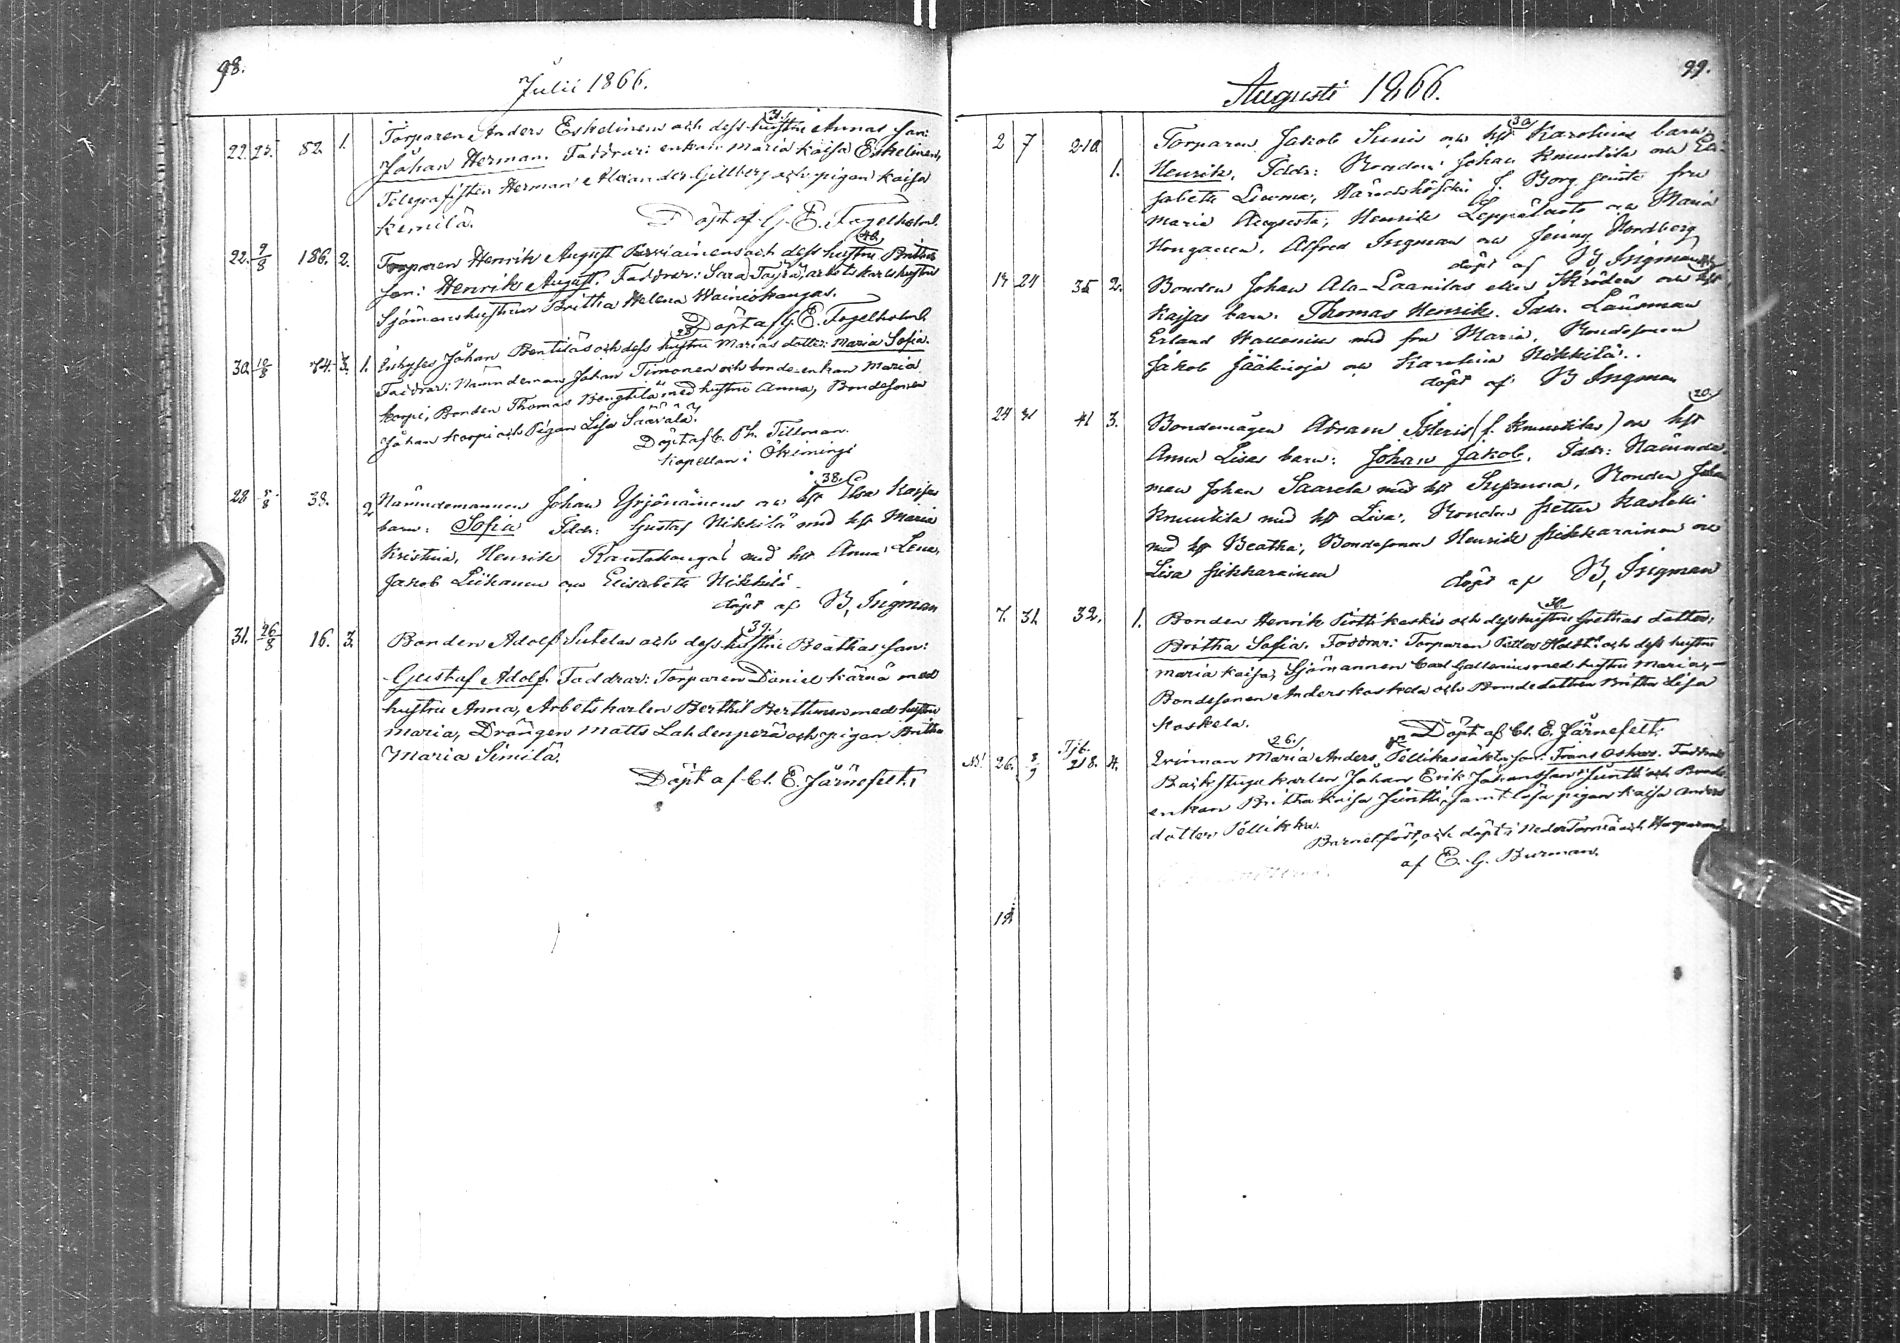 98.
Julii 1866.
31.
22. 25. 82. 1. Torparen Anders Eskelinens och dess hustru Annas son:
Johan Herman. Faddrar: enkan Maria Kaisa Eskelinen,
Telegrafisten Herman Alexander Gillberg och pigan Kaisa
Kemilä.
Döpt af G. E. Fogelholm.
40.
22. 9/8 186. 2. Torparen Henrik August Parviainens och dess hustru Brithas
son: Henrik August. Faddrar: Sara, arbetskarlshustru
Sjömanshustrun Britha Helena Wainiokangas.
Döpt af G. E. Fogelholm.
23.
30. 12/8 74. 3. 1. Inhyses Johan Pentiläs och dess hustru Marias dotter: Maria Sofia.
Faddrar: Nämndeman Johan Timonen och bonde-enkan Maria
Korpi, Bonden Thomas Bengtilä med hustru Anna, Bondesonen
Johan Korpi och Pigan Lisa Saarala.
Döpt af C. Ph. Tillman.
Kapellan i Ökiminge
38.
28 5/8 38. 2 Nämndemannen Johan Yrjönäinens och hst Elsa Kaisas
barn: Sofia Fddr: Gustaf Nikkilä med hst Maria
Kristina, Henrik Rantakangas med hst Anna Lena,
Jakob Liikanen och Elisabeth Nikkilä
döpt af B. Ingman
39.
31. 26/8 16. 3. Bonden Adolf Sutelas och dess hustru Beathas son:
Gustaf Adolf. Faddrar: Torparen Daniel Kärnä med
hustru Anna, Arbetskarlen Berthil Berthunen med hustru
Maria, Drängen Matts Lahdenperä och pigan Britha
Maria Similä.
Döpt af Cl. E. Järnefelt.
99.
Augusti 1866.
30
2 7 210. Torparen Jakob Sunis och hst Karolinas barn
1. Henrik, Fddr: Bonden Johan Knuutila och Eli-
sabeth Luoma, Häradshöfdin J. Borg jemte fru
Maria Augusta, Henrik Leppälaoto och Maria
Honganen, Alfred Ingman och Jenny Nordberg
döpt af B Ingman
24 35 2. Bonden Johan Ala-Laanilas eller Skridens och hst
Kaisas barn. Thomas Henrik. Fddr. Länsman
Erland Hallenius med fru Maria, Bondesonen
Jakob Jääkioja och Karolina Nikkilä.
döpt af B Ingman
20.
24 31 41 3. Bondemågen Abram Isteris (f. Knuutilas) och hst
Anna Lisas barn: Johan Jakob, Fddr: Nämnde-
man Johan Saarela med hst Susanna, Bonden Johan
Knuutila med hst Lisa, Bonden Petter Kastelli
med hst Beatha, Bondesonen Henrik Pikkarainen och
Lisa Pikkarainen
döpt af B, Ingman
7. 31. 32. 1. Bonden Henrik Pirttikoskis och dess hustru Grethas dotter:
Britha Sofia. Faddrar: Torparen Petter Holsti och dess hustru
Maria Kaisa, Sjömannen Carl Gallenius med hustru Maria,
Bondesonen Anders Koskela och Bondedottern Britha Lisa
Koskela.
Döpt af Cl. E. Järnefelt.
26.
26. 2/9 218. 4. Qvinnan Maria Anders. Pellikas oäkta son: Frans Oskar. Faddrar:
Backstugukarlen Johan Erik Johansson Juntti och Bonde-
enkan Britha Kaisa Juntti, samt lösa pigan Kaisa Anders
dotter Pellikka.
Barnet född och döpt i Neder Torneå och Haparanda
af E. G. Burman.
19.